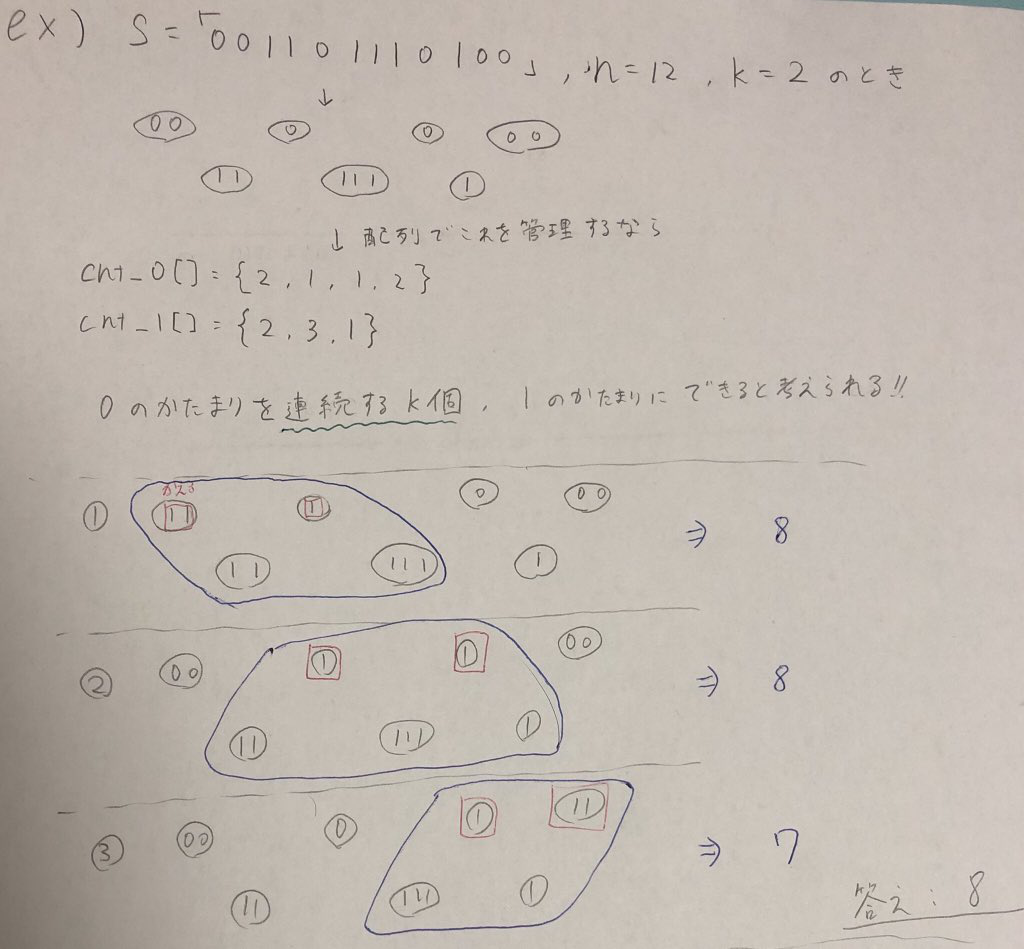 ex) S=「001101110100」, n=12 , k=2 のとき
↓
00 0 0 00
11 111 1
↓ 配列でこれを管理するなら
cnt_0[] = {2, 1, 1, 2}
cnt_1[] = {2, 3, 1}
0のかたまりを連続するk個, 1のかたまりにできると考えられる!!
かえる
① 11 1 0 00 ⇒ 8
11 111 1
② 00 1 1 00 ⇒ 8
11 111 1
③ 00 0 1 11 ⇒ 7
11 111 1
答え: 8